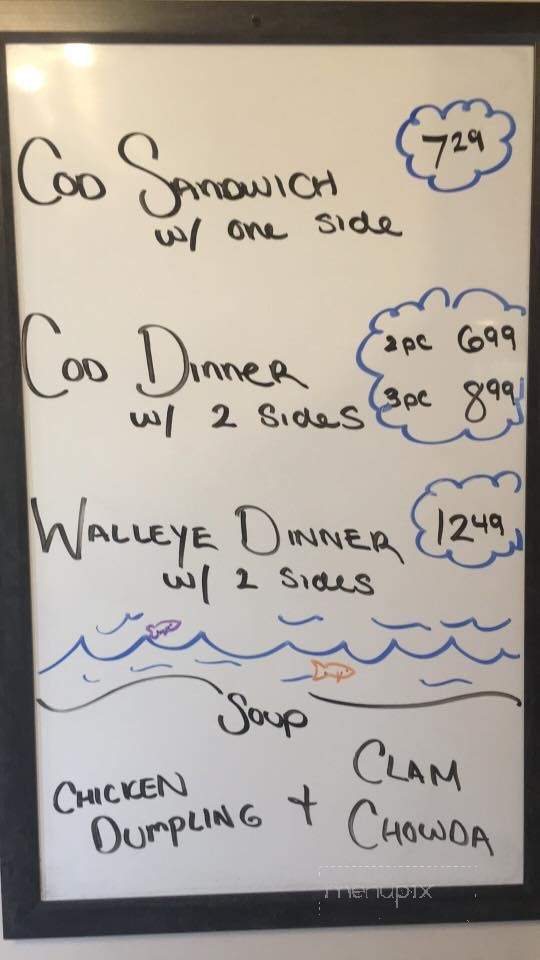 Cod Sandwich 7 29
w/ one side
2pc 6 99
Cod Dinner
3pc 8 99
w/ 2 sides
Walleye Dinner 12 49
w/ 2 sides
Soup
Chicken Dumpling + Clam Chowda
menupix